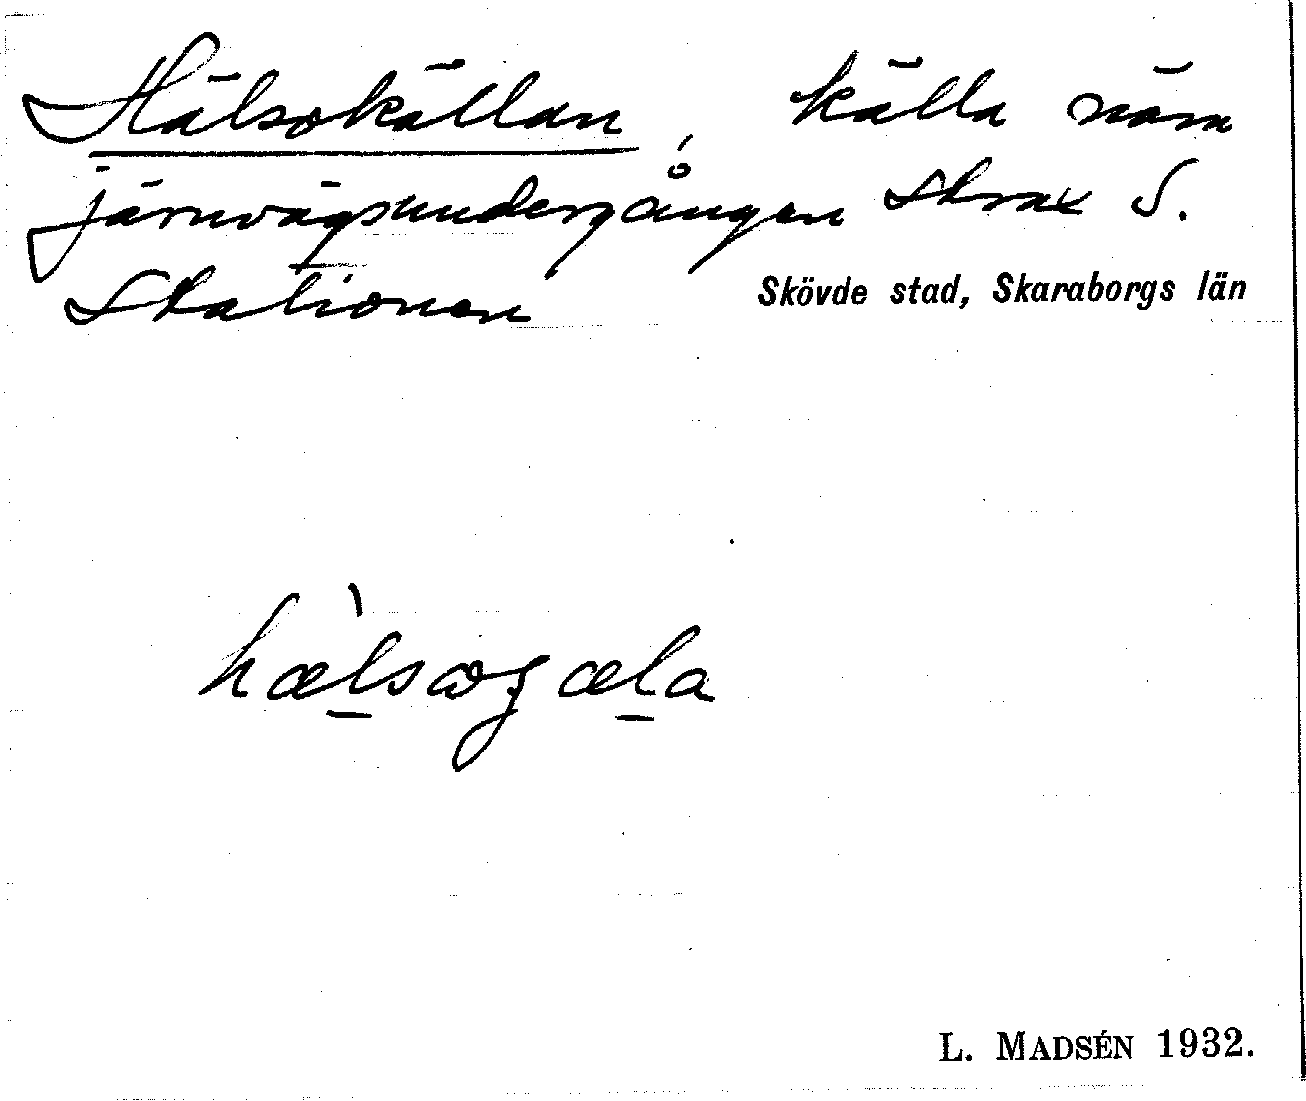 Hälsokällan, källa nära
järnvägsundergången strax S.
Stationen
Skövde stad, Skaraborgs län
hæ̀lsoɡæla
L. MADSÉN 1932.